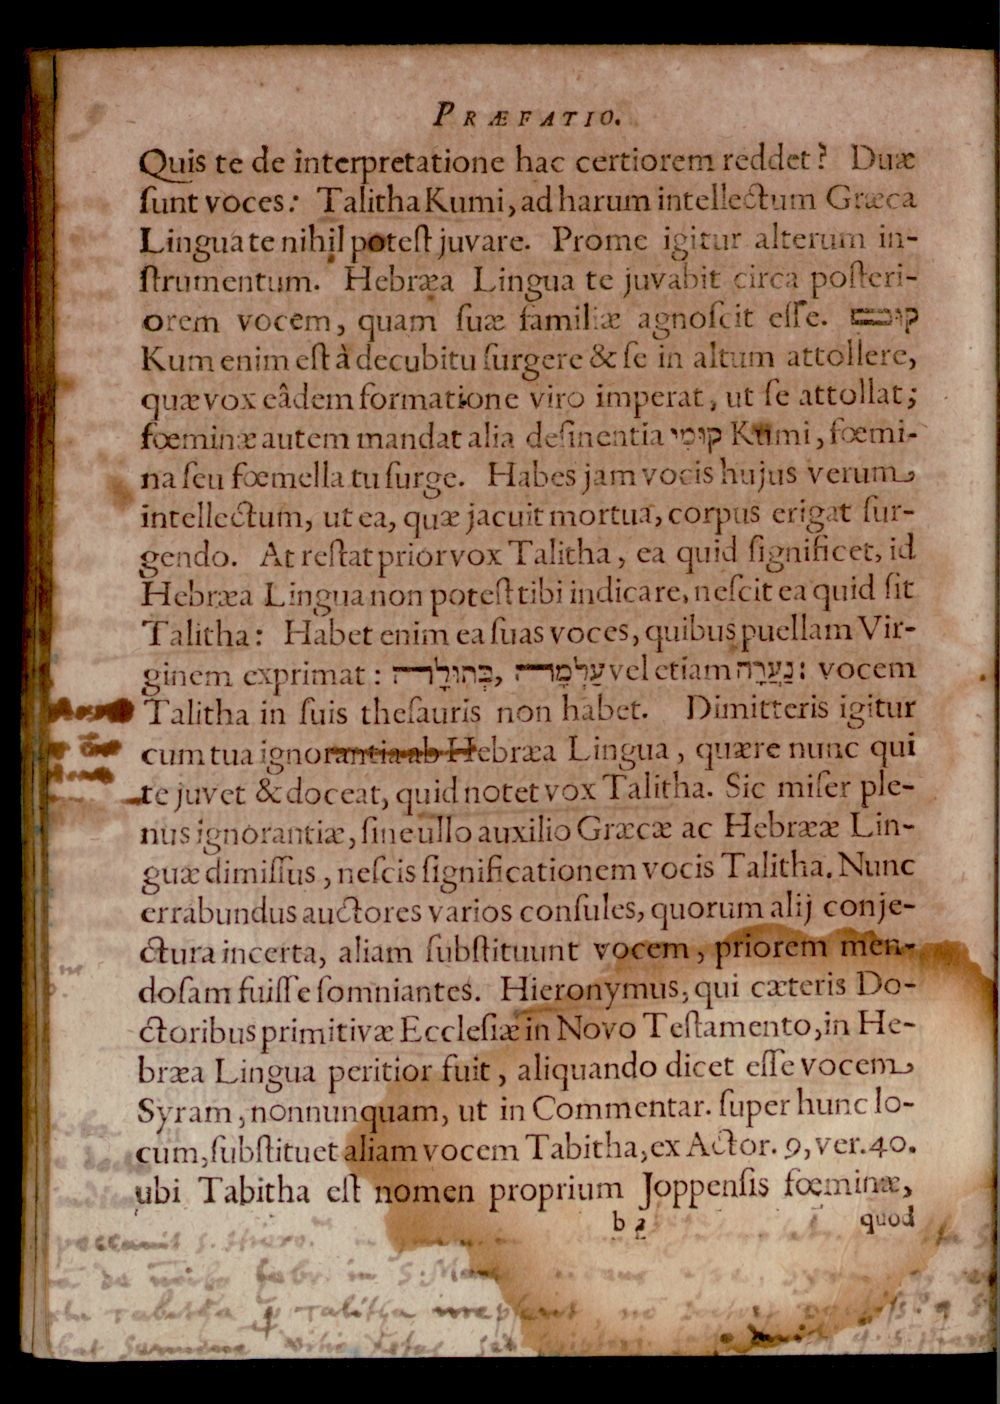 PRÆFATIO.
Quis te de interpretatione hac certiorem reddet? Duæ
ſunt voces: Talitha Kumi, ad harum intellectum Græca
Lingua te nihil poteſt juvare. Prome igitur alterum in-
ſtrumentum. Hebræa Lingua te juvabit circa poſteri-
orem vocem, quam ſuæ familiæ agnoſcit eſſe. קום
Kum enim eſt à decubitu ſurgere & ſe in altum attollere,
quæ vox eâdem formatione viro imperat, ut ſe attollat;
fœminæ autem mandat alia deſinentia קומי Kumi, fœmi-
na ſeu fœmella tu ſurge. Habes jam vocis hujus verum
intellectum, ut ea, quæ jacuit mortua, corpus erigat ſur-
gendo. At reſtat prior vox Talitha, ea quid ſignificet, id
Hebræa Lingua non poteſt tibi indicare, neſcit ea quid ſit
Talitha: Habet enim ea ſuas voces, quibus puellam Vir-
ginem exprimat: בְּתוּלָה, עַלְמָה vel etiam נַעֲרָה: vocem
Talitha in ſuis theſauris non habet. Dimitteris igitur
cum tua ignorantia ab Hebræa Lingua, quære nunc qui
te juvet & doceat, quid notet vox Talitha. Sic miſer ple-
nus ignorantiæ, ſine ullo auxilio Græcæ ac Hebrææ Lin-
guæ dimiſſus, neſcis ſignificationem vocis Talitha. Nunc
errabundus auctores varios conſules, quorum alij conje-
ctura incerta, aliam ſubſtituunt vocem, priorem men-
doſam fuiſſe ſomniantes. Hieronymus, qui cæteris Do-
ctoribus primitivæ Eccleſiæ in Novo Teſtamento, in He-
bræa Lingua peritior fuit, aliquando dicet eſſe vocem
Syram, nonnunquam, ut in Commentar. ſuper hunc lo-
cum, ſubſtituet aliam vocem Tabitha, ex Actor. 9, ver. 40.
ubi Tabitha eſt nomen proprium Joppenſis fœminæ,
b 2 quod